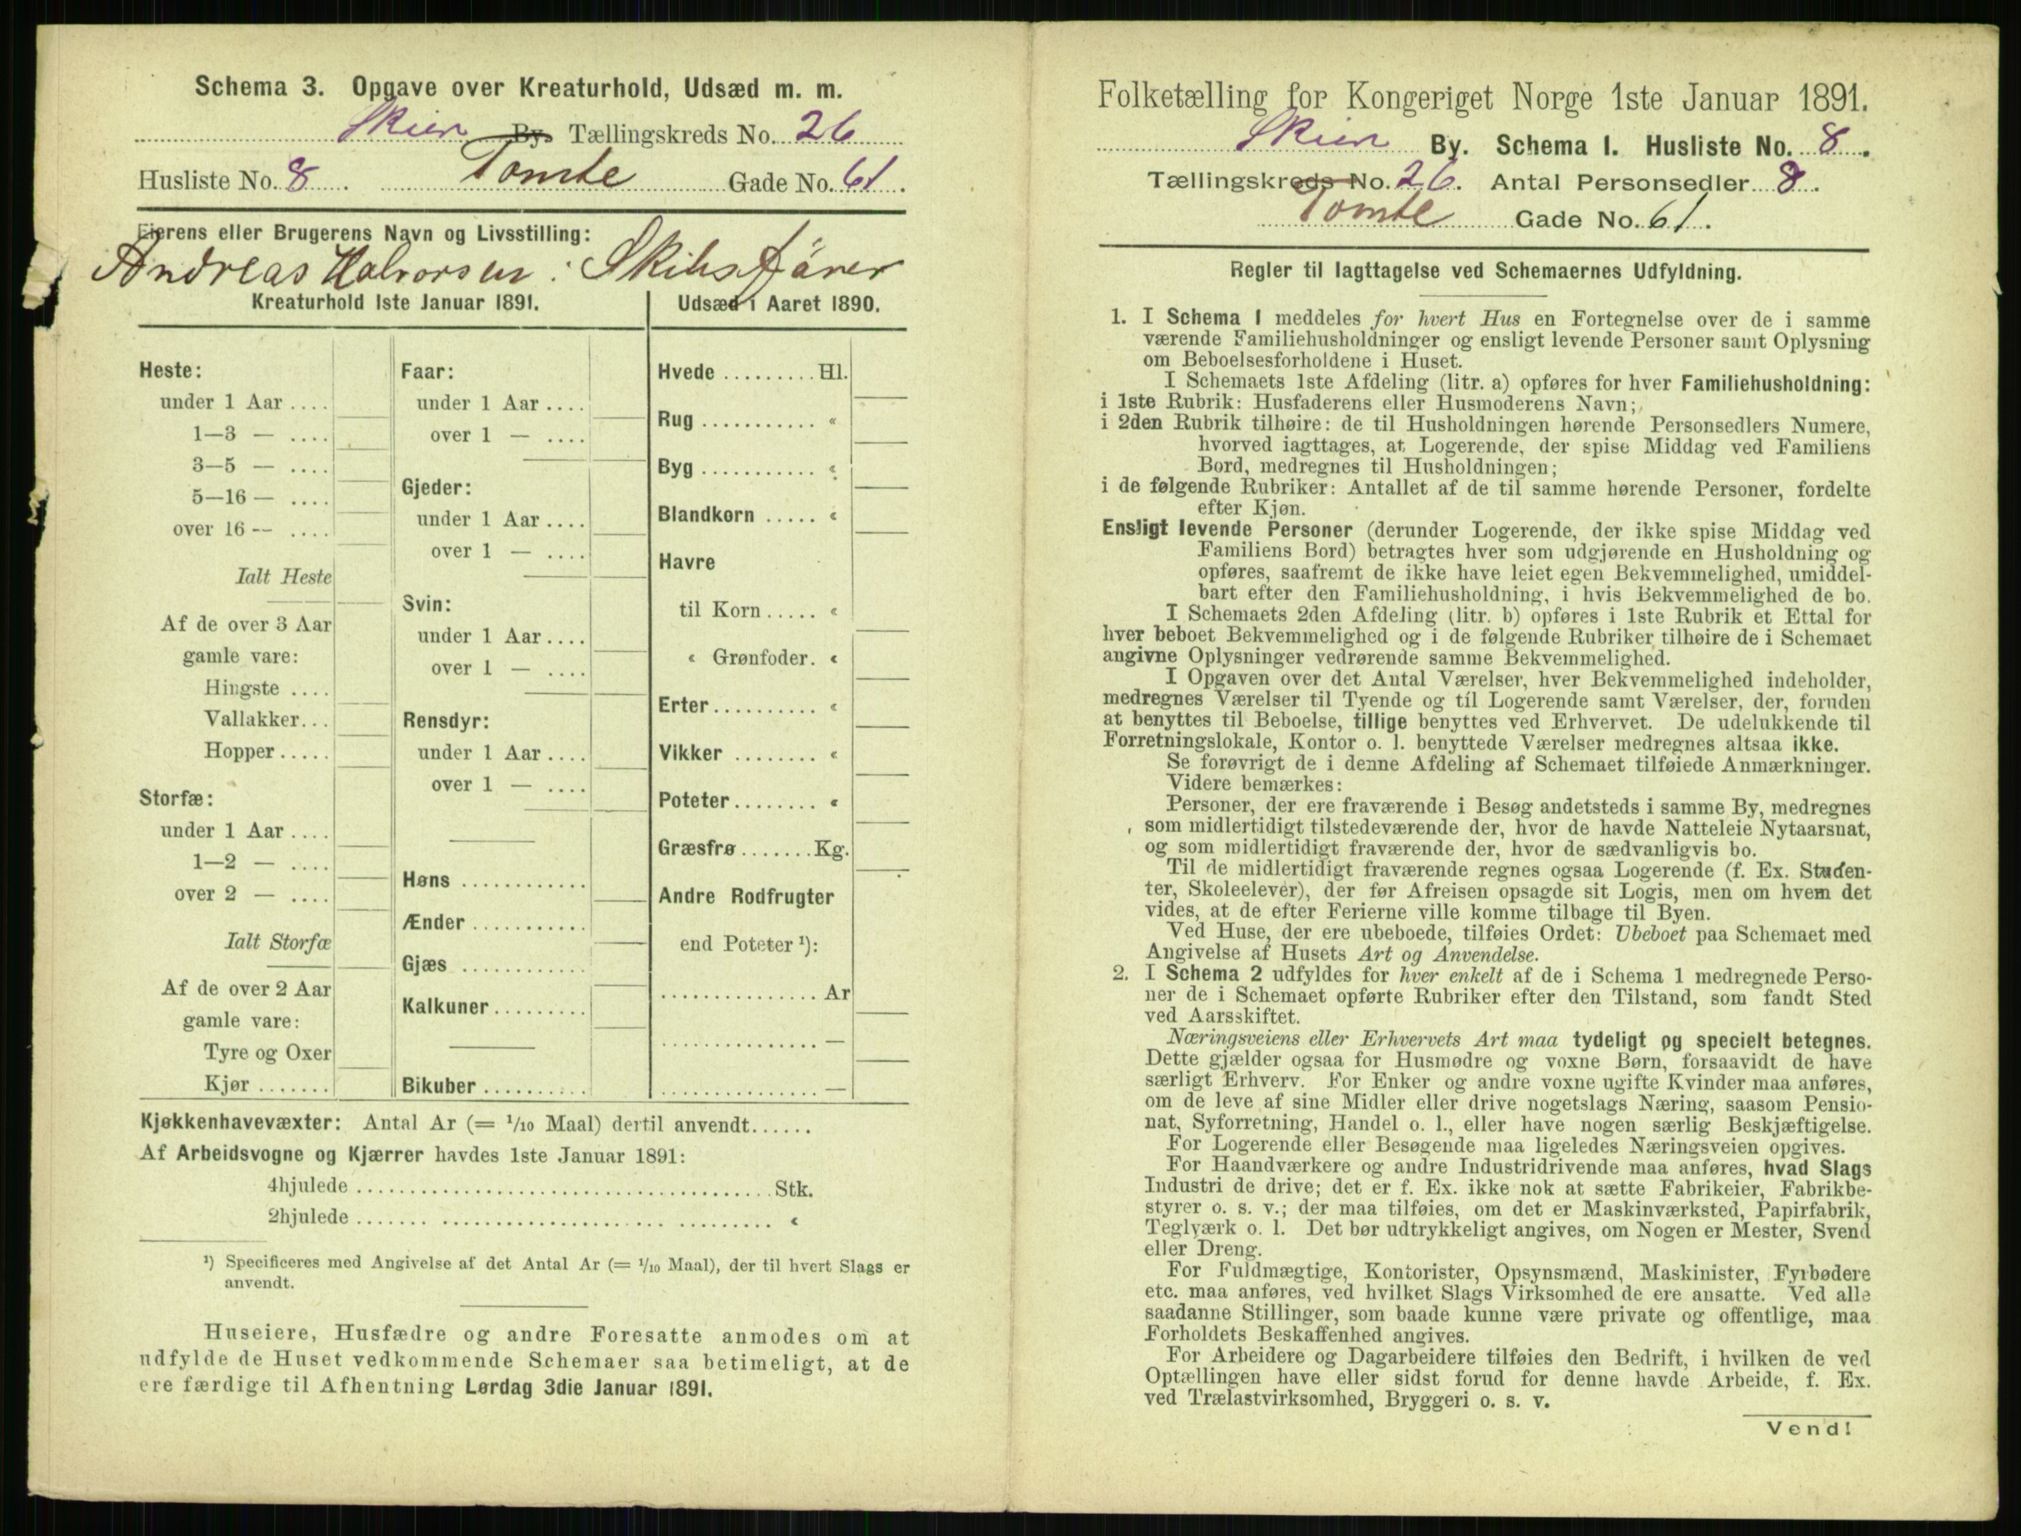 Schema 3. Opgave over Kreaturhold, Udsæd m. m.
Skien By. Tællingskreds No. 26
Husliste No. 8. Tomte Gade No. 61.
Eierens eller Brugerens Navn og Livsstilling:
Andreas Halvorsen: Skibsfører
Kreaturhold 1ste Januar 1891.
Heste:
under 1 Aar ....
1—3 — ....
3—5 — ....
5—16 — ....
over 16 -- ....
Ialt Heste
Af de over 3 Aar
gamle vare:
Hingste ....
Vallakker...
Hopper.....
Storfæ:
under 1 Aar ....
1—2 — ....
over 2 — ....
Ialt Storfæ
Af de over 2 Aar
gamle vare:
Tyre og Oxer
Kjør .......
Faar:
under 1 Aar ....
over 1 — ....
Gjeder:
under 1 Aar ....
over 1 — ....
Svin:
under 1 Aar ....
over 1 — ....
Rensdyr:
under 1 Aar ....
over 1 — ....
Høns ............
Ænder ...........
Gjæs ............
Kalkuner.........
Bikuber ..........
Udsæd i Aaret 1890.
Hvede ......... Hl.
Rug ........... «
Byg ........... «
Blandkorn ..... «
Havre
til Korn ..... «
« Grønfoder. «
Erter.......... «
Vikker ........ «
Poteter........ «
Græsfrø ....... Kg.
Andre Rodfrugter
end Poteter ¹):
............... Ar
............... —
............... —
Kjøkkenhavevæxter: Antal Ar (= 1/10 Maal) dertil anvendt......
Af Arbeidsvogne og Kjærrer havdes 1ste Januar 1891:
4hjulede ....................................... Stk.
2hjulede ....................................... «
¹) Specificeres med Angivelse af det Antal Ar (= 1/10 Maal), der til hvert Slags er
anvendt.
Huseiere, Husfædre og andre Foresatte anmodes om at
udfylde de Huset vedkommende Schemaer saa betimeligt, at de
ere færdige til Afhentning Lørdag 3die Januar 1891.
Folketælling for Kongeriget Norge 1ste Januar 1891.
Skien By. Schema 1. Husliste No. 8.
Tællingskreds No. 26. Antal Personsedler 8.
Tomte Gade No. 61.
Regler til Iagttagelse ved Schemaernes Udfyldning.
1. I Schema 1 meddeles for hvert Hus en Fortegnelse over de i samme
værende Familiehusholdninger og ensligt levende Personer samt Oplysning
om Beboelsesforholdene i Huset.
I Schemaets 1ste Afdeling (litr. a) opføres for hver Familiehusholdning:
i 1ste Rubrik: Husfaderens eller Husmoderens Navn;
i 2den Rubrik tilhøire: de til Husholdningen hørende Personsedlers Numere,
hvorved iagttages, at Logerende, der spise Middag ved Familiens
Bord, medregnes til Husholdningen;
i de følgende Rubriker: Antallet af de til samme hørende Personer, fordelte
efter Kjøn.
Ensligt levende Personer (derunder Logerende, der ikke spise Middag ved
Familiens Bord) betragtes hver som udgjørende en Husholdning og
opføres, saafremt de ikke have leiet egen Bekvemmelighed, umiddel-
bart efter den Familiehusholdning, i hvis Bekvemmelighed de bo.
I Schemaets 2den Afdeling (litr. b) opføres i 1ste Rubrik et Ettal for
hver beboet Bekvemmelighed og i de følgende Rubriker tilhøire de i Schemaet
angivne Oplysninger vedrørende samme Bekvemmelighed.
I Opgaven over det Antal Værelser, hver Bekvemmelighed indeholder,
medregnes Værelser til Tyende og til Logerende samt Værelser, der, foruden
at benyttes til Beboelse, tillige benyttes ved Erhvervet. De udelukkende til
Forretningslokale, Kontor o. l. benyttede Værelser medregnes altsaa ikke.
Se forøvrigt de i denne Afdeling af Schemaet tilføiede Anmærkninger.
Videre bemærkes:
Personer, der ere fraværende i Besøg andetsteds i samme By, medregnes
som midlertidigt tilstedeværende der, hvor de havde Natteleie Nytaarsnat,
og som midlertidigt fraværende der, hvor de sædvanligvis bo.
Til de midlertidigt fraværende regnes ogsaa Logerende (f. Ex. Studen-
ter, Skoleelever), der før Afreisen opsagde sit Logis, men om hvem det
vides, at de efter Ferierne ville komme tilbage til Byen.
Ved Huse, der ere ubeboede, tilføies Ordet: Ubeboet paa Schemaet med
Angivelse af Husets Art og Anvendelse.
2. I Schema 2 udfyldes for hver enkelt af de i Schema 1 medregnede Perso-
ner de i Schemaet opførte Rubriker efter den Tilstand, som fandt Sted
ved Aarsskiftet.
Næringsveiens eller Erhvervets Art maa tydeligt og specielt betegnes.
Dette gjælder ogsaa for Husmødre og voxne Børn, forsaavidt de have
særligt Erhverv. For Enker og andre voxne ugifte Kvinder maa anføres,
om de leve af sine Midler eller drive nogetslags Næring, saasom Pensio-
nat, Syforretning, Handel o. l., eller have nogen særlig Beskjæftigelse.
For Logerende eller Besøgende maa ligeledes Næringsveien opgives.
For Haandværkere og andre Industridrivende maa anføres, hvad Slags
Industri de drive; det er f. Ex. ikke nok at sætte Fabrikeier, Fabrikbe-
styrer o. s. v.; der maa tilføies, om det er Maskinværksted, Papirfabrik,
Teglværk o. l. Det bør udtrykkeligt angives, om Nogen er Mester, Svend
eller Dreng.
For Fuldmægtige, Kontorister, Opsynsmænd, Maskinister, Fyrbødere
etc. maa anføres, ved hvilket Slags Virksomhed de ere ansatte. Ved alle
saadanne Stillinger, som baade kunne være private og offentlige, maa
Forholdets Beskaffenhed angives.
For Arbeidere og Dagarbeidere tilføies den Bedrift, i hvilken de ved
Optællingen have eller sidst forud for denne havde Arbeide, f. Ex.
ved Trælastvirksomhed, Bryggeri o. s. v.
Vend!